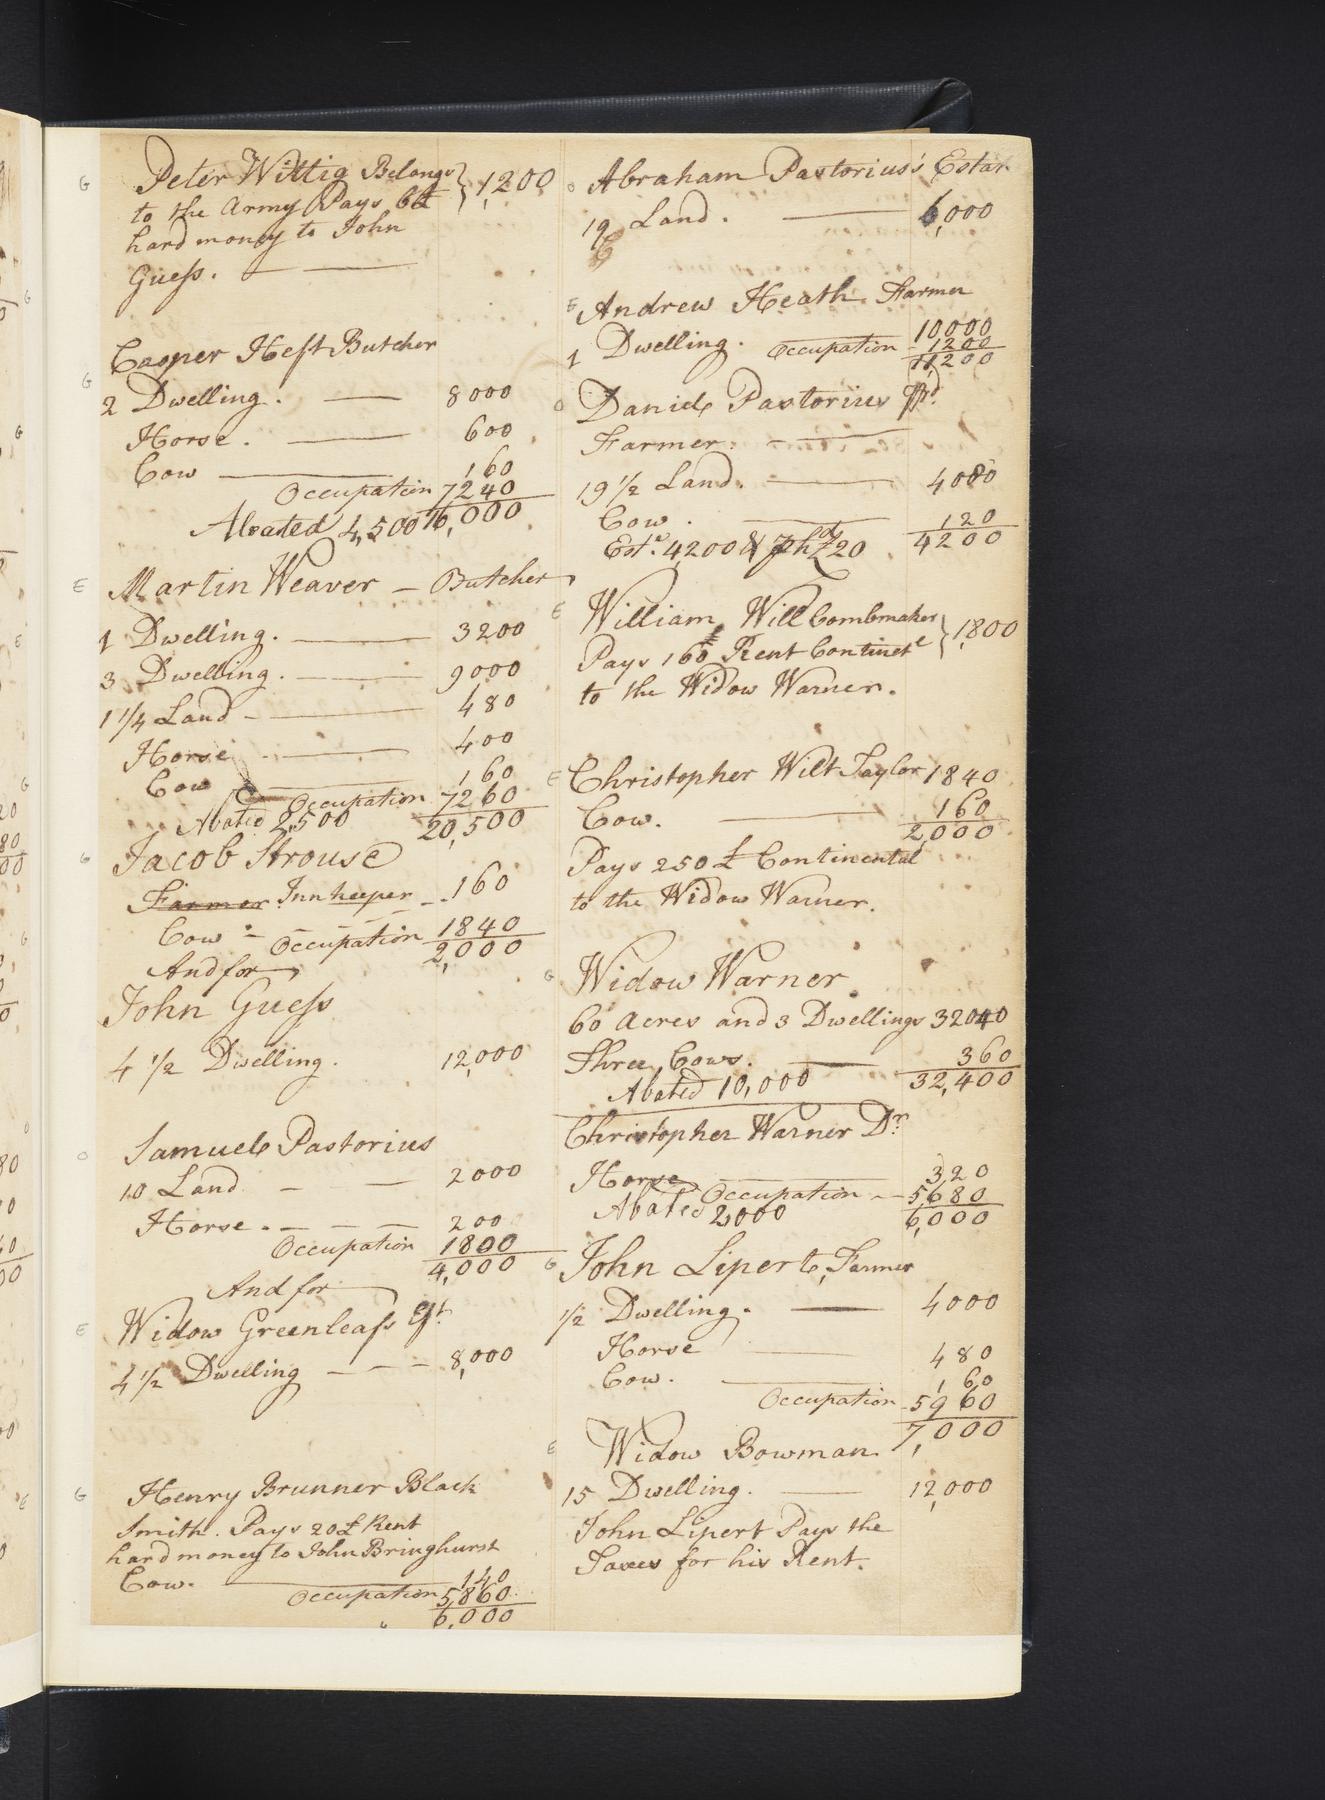 G Peter Wittig Belongs } 1,200
to the Army Pays 6£
hard money to John
Guess.
Casper Heft Butcher
G
2 Dwelling. 8000
Horse. 600
Cow 160
Occupation 7240
Abated 4,500 16,000
E Martin Weaver - Butcher
1 Dwelling. 3200
3 Dwelling. 9000
1 1/4 Land - 480
Horse 400
Cow 160
Occupation 7260
Abated 2,500 20,500
G Jacob Strouse
Farmer Innkeeper - 160
Cow - Occupation 1840
2,000
And for
John Guess
4 1/2 Dwelling. 12,000
O Samuel Pastorius
10 Land - - 2000
Horse. - - - 200
Occupation 1800
4,000
And for
E Widow Greenleafs
4 1/2 Dwelling - - - 8,000
G Henry Brunner Black
Smith. Pays 20£ Rent
hard money to John Bringhurst
Cow. 140
Occupation 5,860
6,000
O Abraham Pastorius's Estat
19 Land. 6,000
E Andrew Heath Farmer
10000
1 Dwelling. Occupation 1200
11,200
O Daniel Pastorius
Farmer.
19 1/2 Land. 4080
Cow. 120
Est. 4,200 & 20 4200
E William Will Combmaker } 1,800
Pays 160£ Rent Continetl
to the Widow Warner.
E Christopher Wilt Taylor 1840
Cow. 160
2,000
Pays 250£ Continental
to the Widow Warner.
G Widow Warner
60 Acres and 3 Dwellings 32040
Three Cows. 360
Abated 10,000 32,400
Christopher Warner Dr
Horse 320
Occupation - 5680
Abated 2,000 6,000
G John Lipert, Farmer
1/2 Dwelling. 4000
Horse 480
Cow. 160
Occupation - 5960
E Widow Bowman. 7,000
15 Dwelling. 12,000
John Lipert Pays the
Taxes for his Rent.